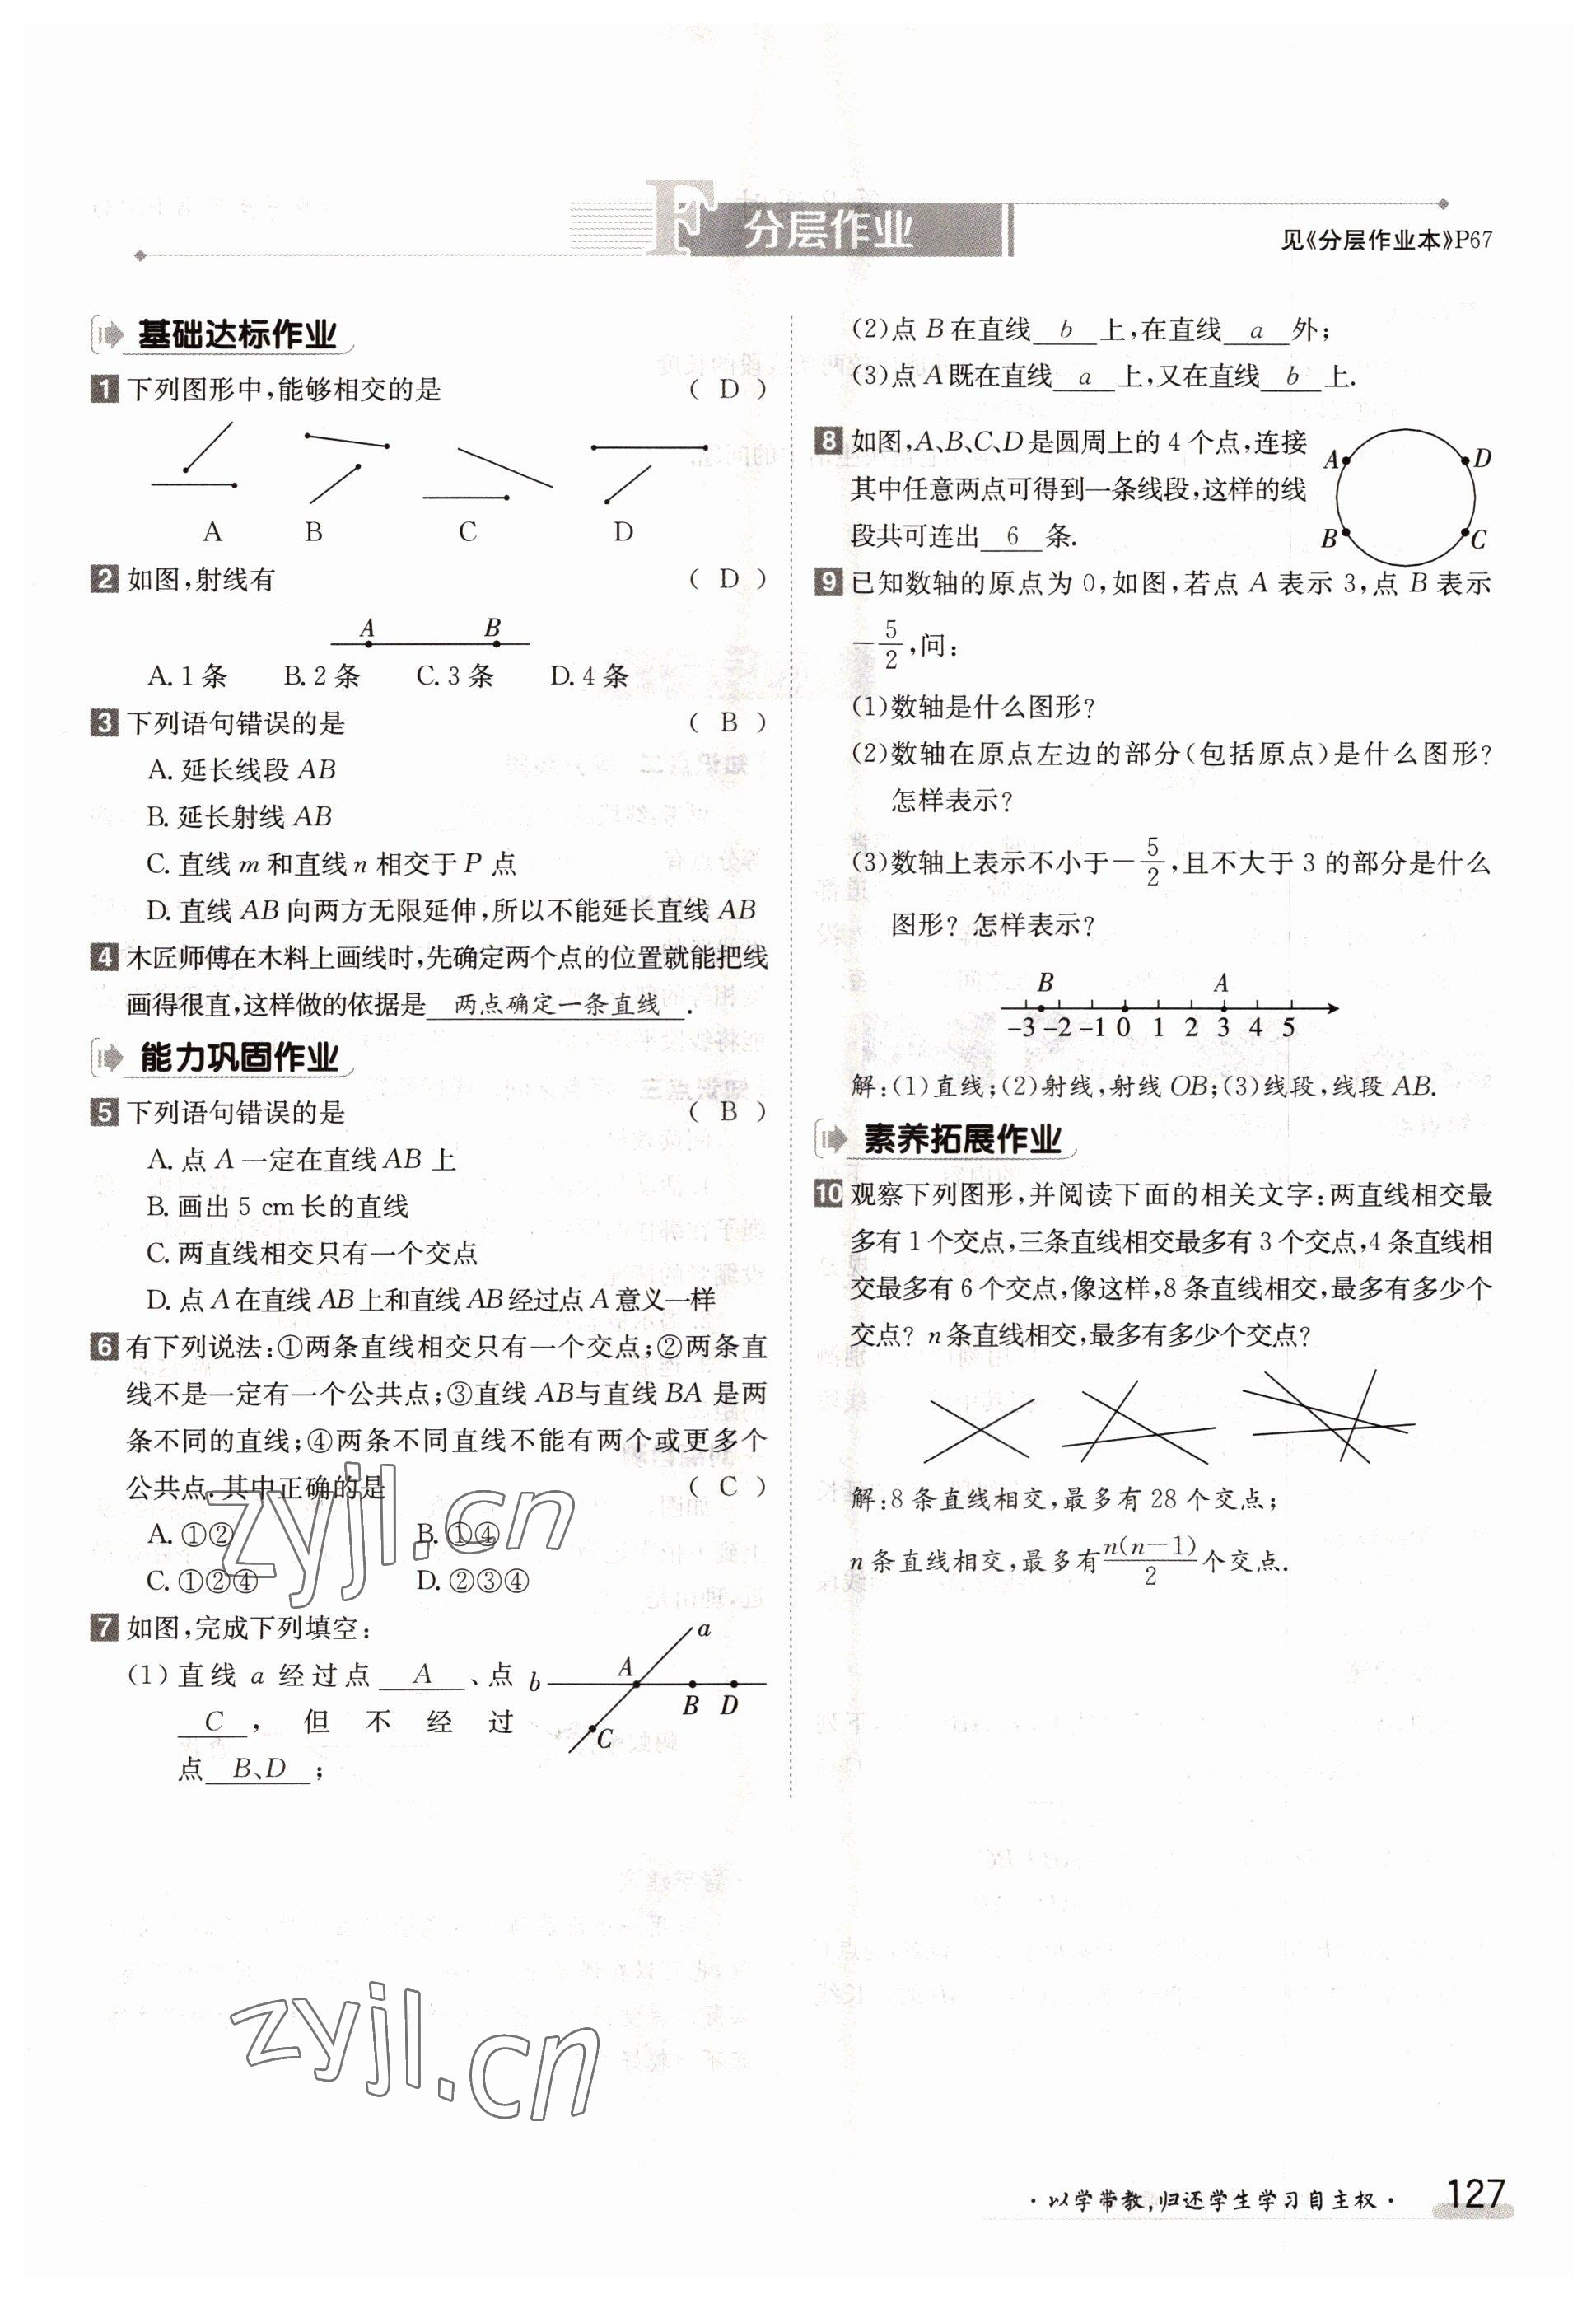 F 分层作业
见《分层作业本》P67
基础达标作业
1 下列图形中,能够相交的是 ( D )
A B C D
2 如图,射线有 ( D )
A B
A. 1 条 B. 2 条 C. 3 条 D. 4 条
3 下列语句错误的是 ( B )
A. 延长线段 AB
B. 延长射线 AB
C. 直线 m 和直线 n 相交于 P 点
D. 直线 AB 向两方无限延伸,所以不能延长直线 AB
4 木匠师傅在木料上画线时,先确定两个点的位置就能把线
画得很直,这样做的依据是 两点确定一条直线 .
能力巩固作业
5 下列语句错误的是 ( B )
A. 点 A 一定在直线 AB 上
B. 画出 5 cm 长的直线
C. 两直线相交只有一个交点
D. 点 A 在直线 AB 上和直线 AB 经过点 A 意义一样
6 有下列说法:①两条直线相交只有一个交点;②两条直
线不是一定有一个公共点;③直线 AB 与直线 BA 是两
条不同的直线;④两条不同直线不能有两个或更多个
公共点. 其中正确的是 ( C )
A. ①② B. ①④
C. ①②④ D. ②③④
7 如图,完成下列填空:
(1) 直线 a 经过点 A 、点
C , 但不经过
点 B、D ;
a
b A B D
C
(2)点 B 在直线 b 上,在直线 a 外;
(3)点 A 既在直线 a 上,又在直线 b 上.
8 如图,A、B、C、D 是圆周上的 4 个点,连接
其中任意两点可得到一条线段,这样的线
段共可连出 6 条.
A D
B C
9 已知数轴的原点为 0,如图,若点 A 表示 3,点 B 表示
-5/2,问:
(1)数轴是什么图形?
(2)数轴在原点左边的部分(包括原点)是什么图形?
怎样表示?
(3)数轴上表示不小于-5/2,且不大于 3 的部分是什么
图形? 怎样表示?
B A
-3 -2 -1 0 1 2 3 4 5
解:(1)直线;(2)射线,射线 OB;(3)线段,线段 AB.
素养拓展作业
10 观察下列图形,并阅读下面的相关文字:两直线相交最
多有 1 个交点,三条直线相交最多有 3 个交点,4 条直线相
交最多有 6 个交点,像这样,8 条直线相交,最多有多少个
交点? n 条直线相交,最多有多少个交点?
解:8 条直线相交,最多有 28 个交点;
n 条直线相交,最多有n(n-1)/2个交点.
zyjl.cn
zyjl.cn
·以学带教,归还学生学习自主权· 127